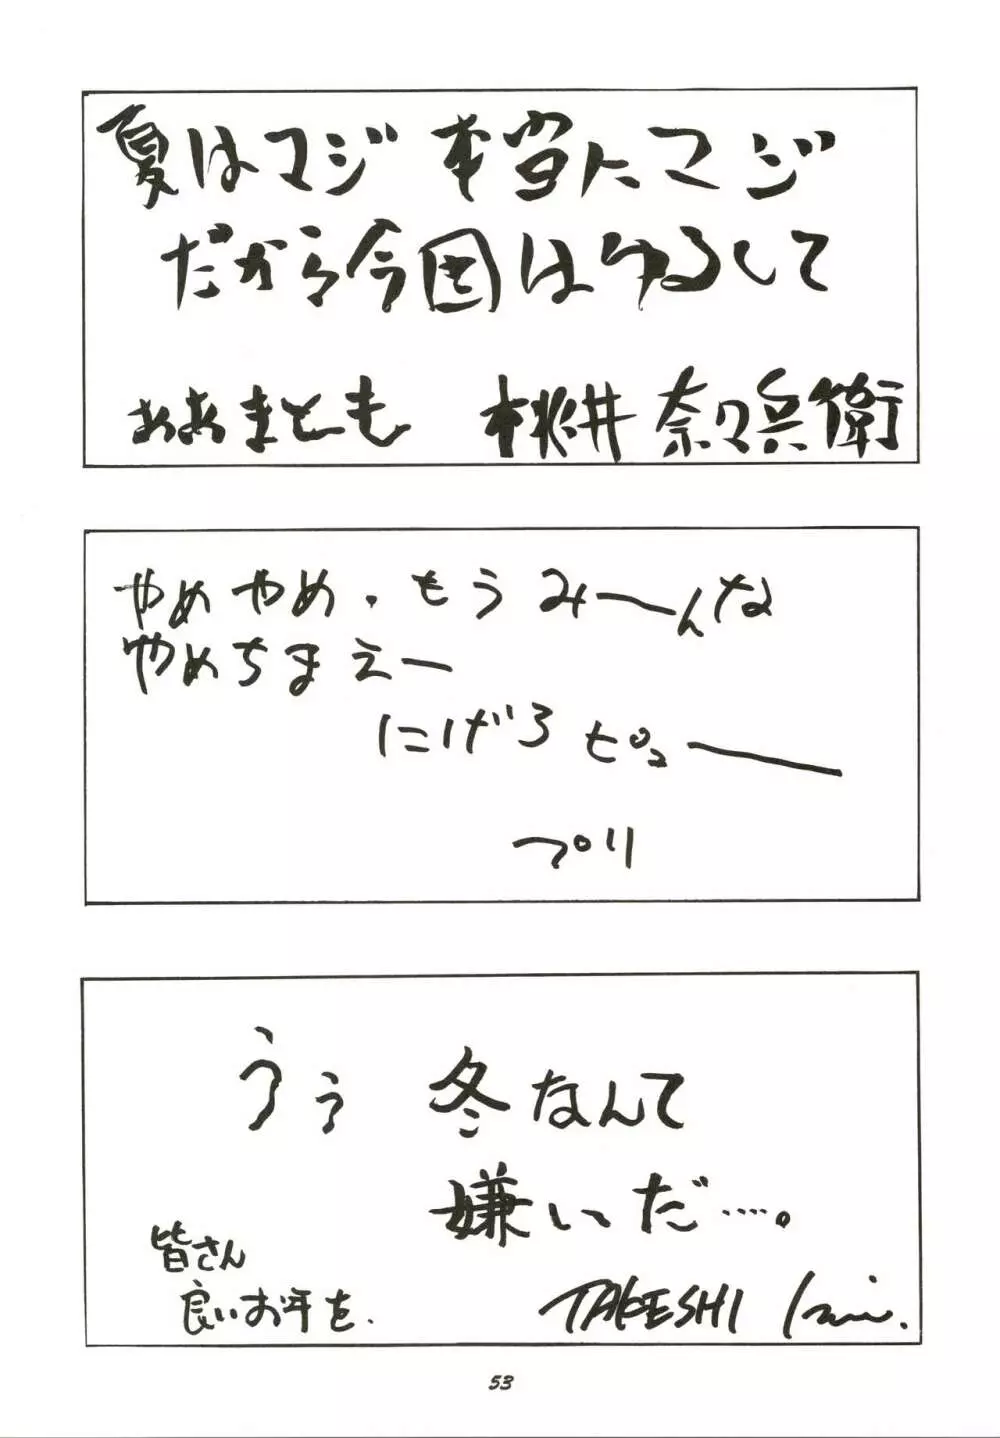 夏はマジ 本当にマジ
だから今回はゆるして
ああまとも 桃井 奈々兵衛
やめやめ、もうみーんな
やめちまえー
にげろ ピューー
プリ
うぅ 冬なんて
嫌いだ……。
皆さん
良いお年を、
TAKESHI
53